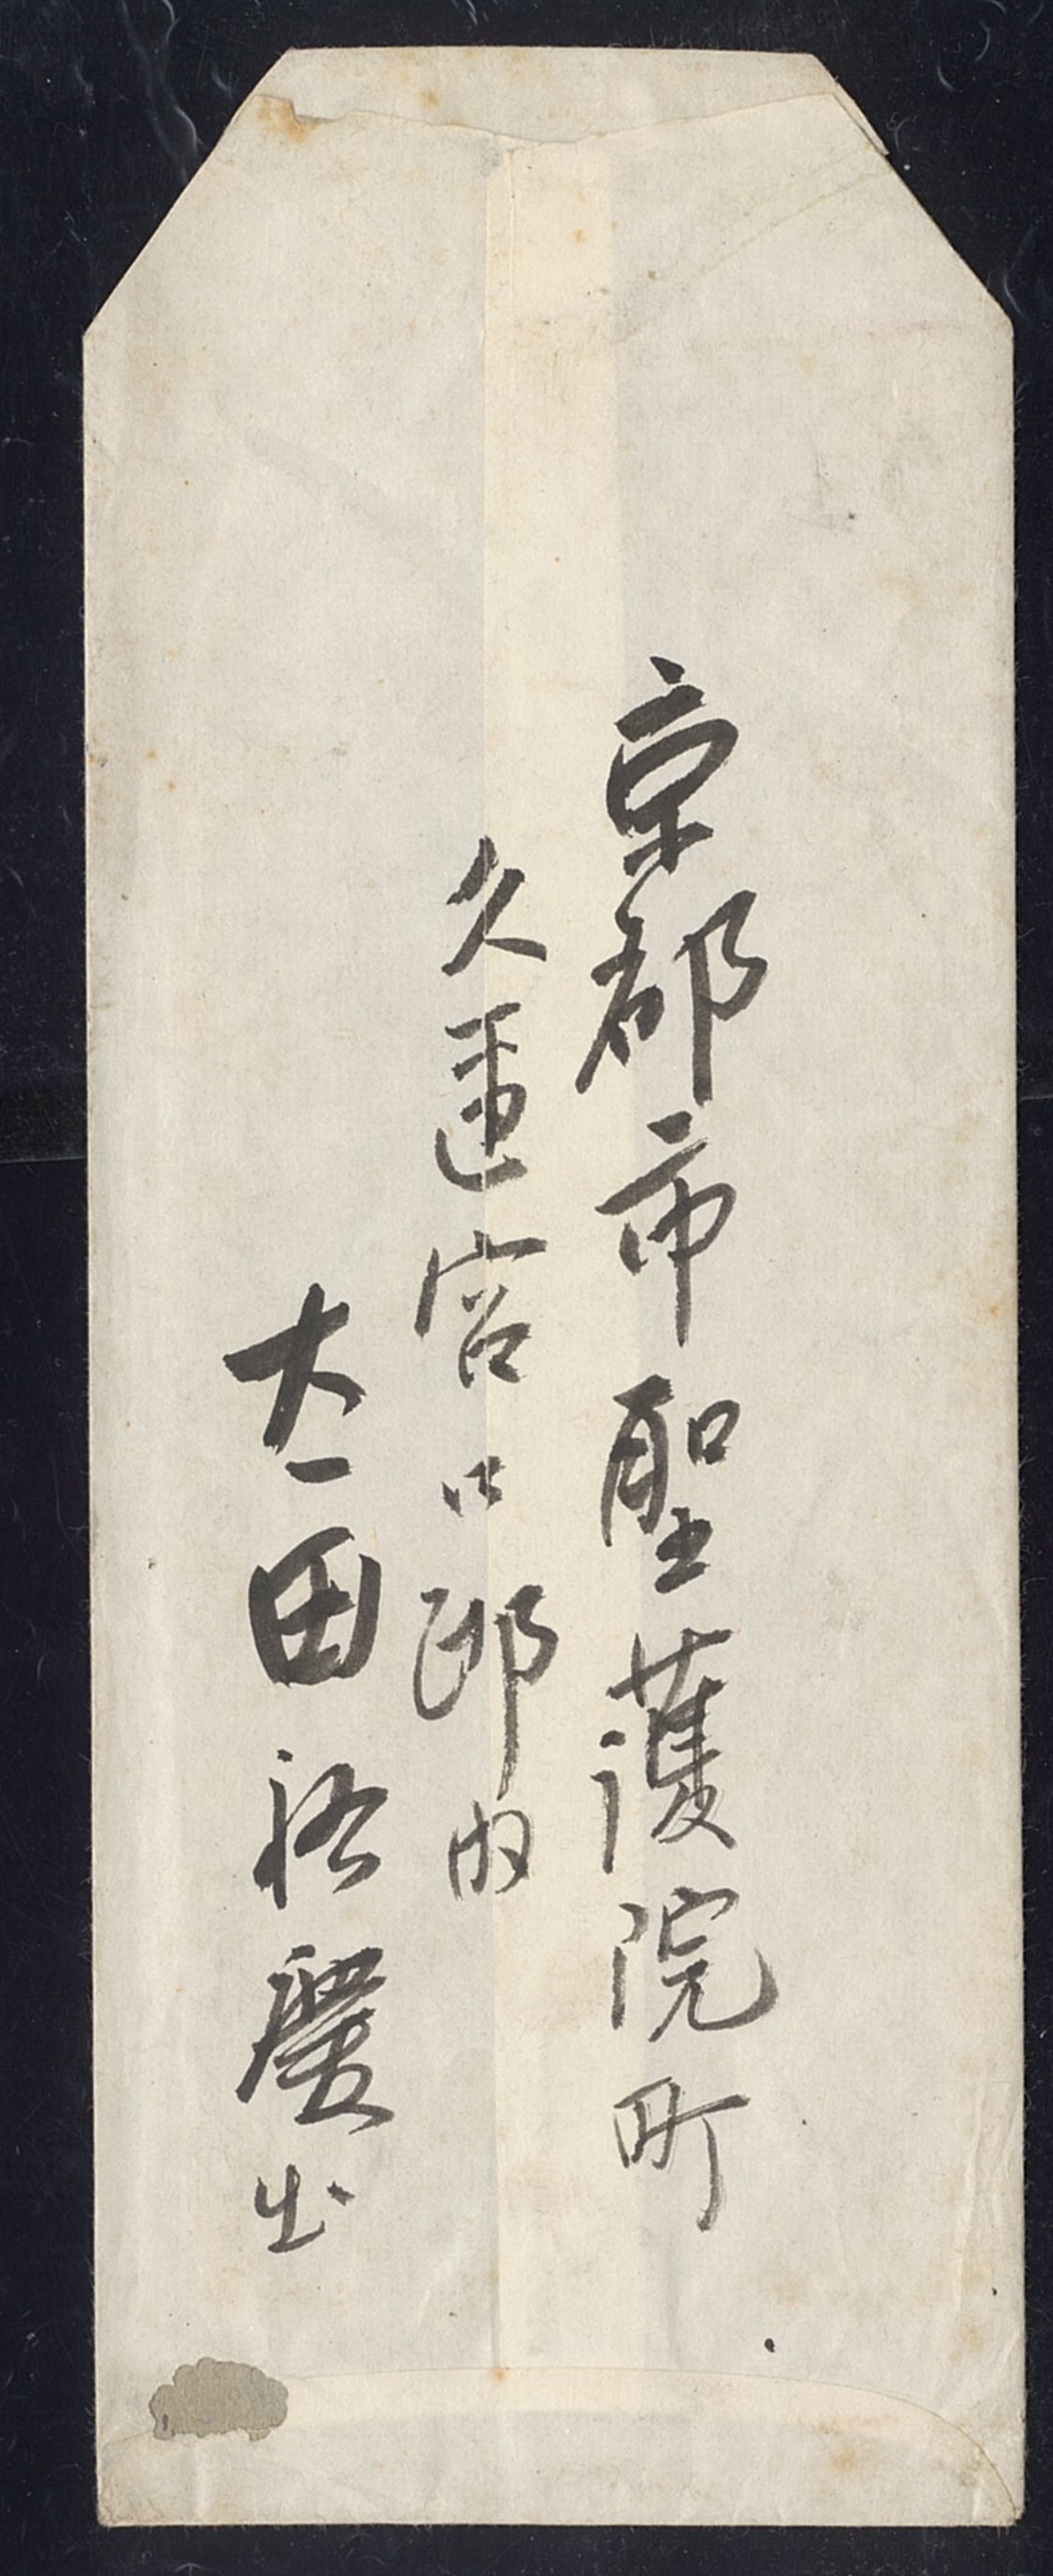 京都市聖護院町
久邇宮御邸内
太田裕慶出